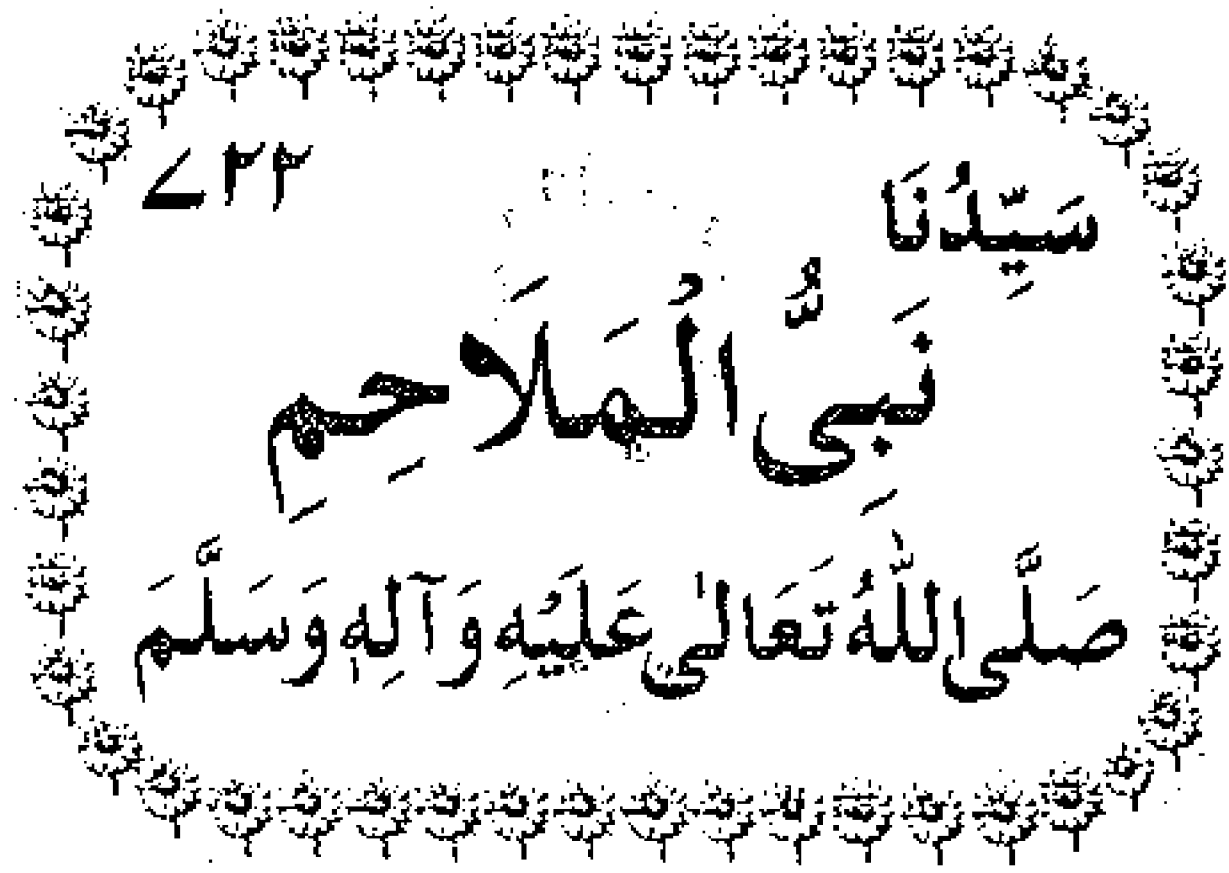 سَيِّدُنَا ۷۲۲
نَبِيُّ الْمَلَاحِمِ
صَلَّى اللّٰهُ تَعَالٰى عَلَيْهِ وَآلِهٖ وَسَلَّمَ